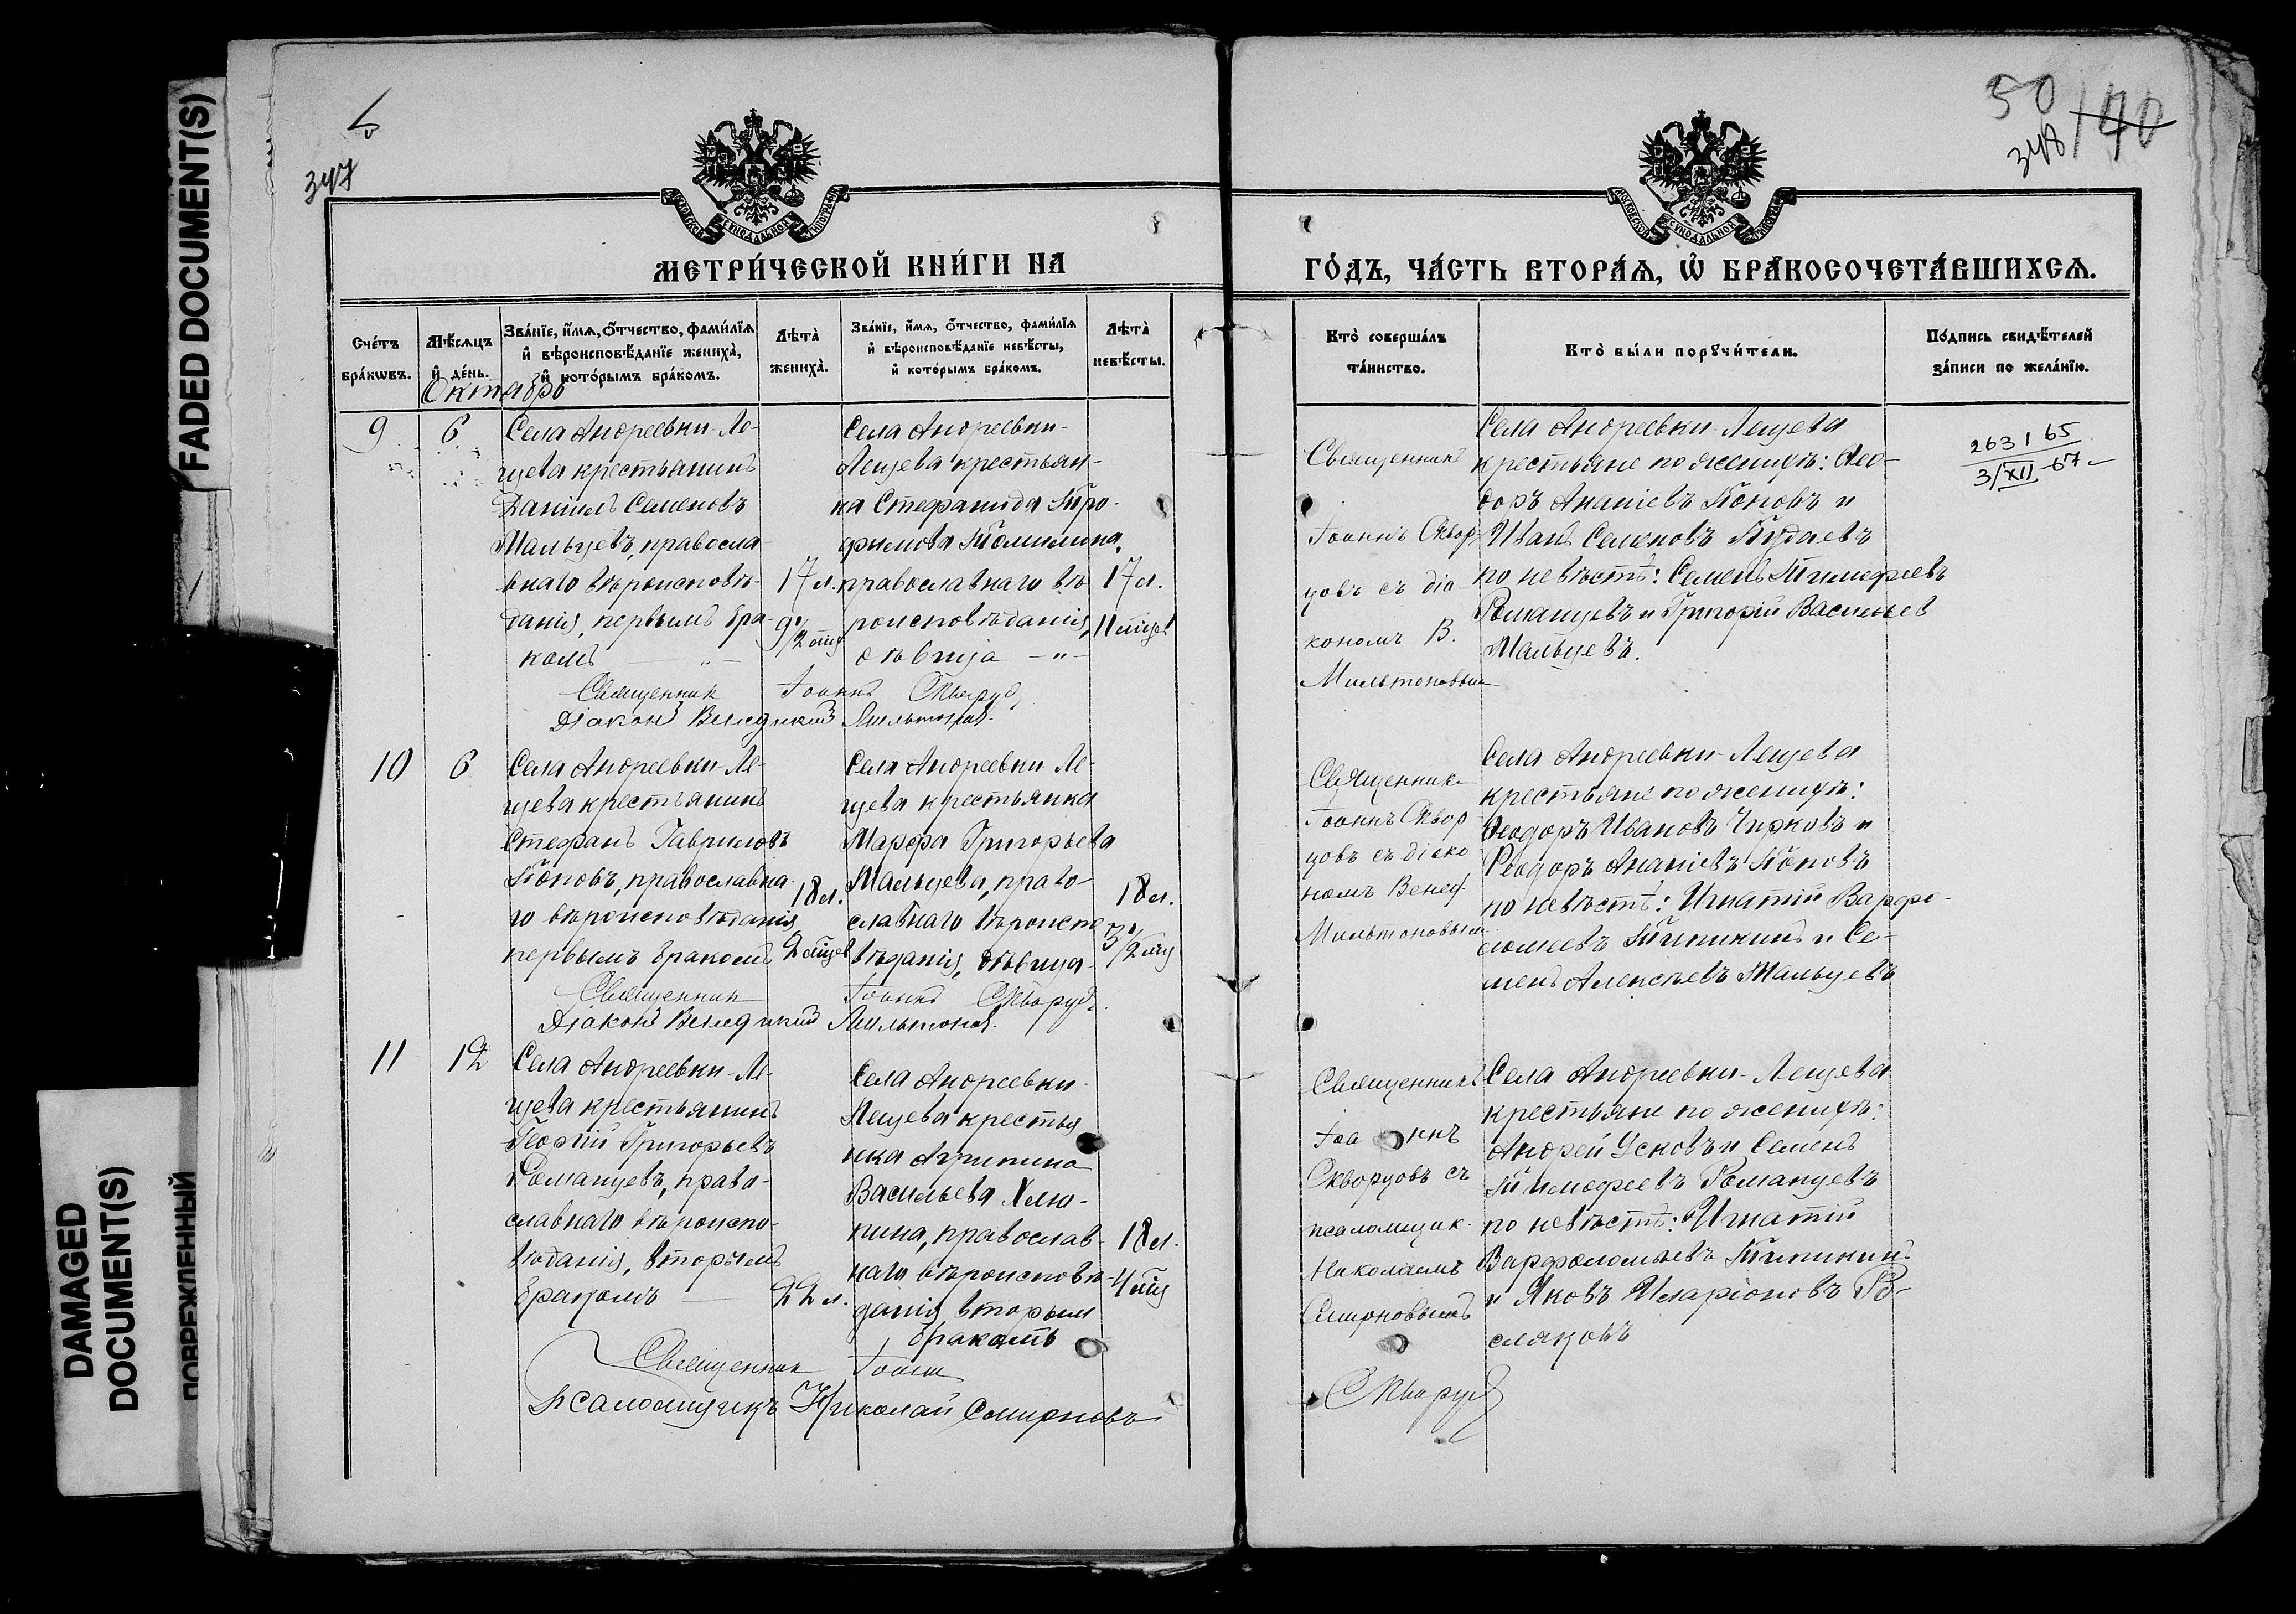 FADED DOCUMENT(S)
DAMAGED
DOCUMENT(S)
ПОВРЕЖДЕННЫЙ
347
МОСКОВСКОЙ СѴНОДАЛЬНОЙ ТИПОГРАФІИ
МЕТРИ́ЧЕСКОЙ КНИ́ГИ НА
Сче́тъ
бра́кѡвъ.
Мѣ́сѧцъ
и҆ де́нь.
Зва́нїе, и҆́мѧ, ѻ҆́тчество, фами́лїѧ
и҆ вѣроисповѣ́данїе жениха̀,
и҆ кото́рымъ бра́комъ.
Лѣта̀
жениха̀.
Зва́нїе, и҆́мѧ, ѻ҆́тчество, фами́лїѧ
и҆ вѣроисповѣ́данїе невѣ́сты,
и҆ кото́рымъ бра́комъ.
Лѣта̀
невѣ́сты.
Октябрь
9
6
Села Андреевки-Ле-
щева крестьянинъ
Даніилъ Семеновъ
Мальцевъ, правосла-
внаго вѣроисповѣ-
данія, первымъ бра-
комъ — „ —
17 л.
9 1/2 мѣц
Села Андреевки-
Лещева крестьян-
ка Стефанида Тро-
фимова Томилина,
православнаго вѣ-
роисповѣданія,
дѣвица — „ —
17 л.
11 мѣцев
Священник Іоаннъ Скворцов
Діаконъ Венедиктъ Мильтонов.
10
6
Села Андреевки-Ле-
щева крестьянинъ
Стефанъ Гавриловъ
Поповъ, православна-
го вѣроисповѣданія,
первымъ бракомъ
18 л.
2 мѣцев
Села Андреевки Ле-
щева крестьянка
Марфа Григорьева
Мальцева, право-
славнаго вѣроиспо-
вѣданія, дѣвица-
18 л.
3 1/2 мѣц
Священник Іоаннъ Скворцовъ.
Діаконъ Венедиктъ Мильтонов.
11
12
Села Андреевки-Ле-
щева крестьянинъ
Георгій Григорьевъ
Романцевъ, право-
славнаго вѣроиспо-
вѣданія, вторымъ
бракомъ —
22 л.
Села Андреевки-
Лещева крестья
нка Агрипина
Васильева Хлю-
пина, православ-
наго вѣроисповѣ-
данія, вторым
бракомъ
18 л.
4 мѣц
Священник Іоанн
Псаломщикъ Николай Смирновъ
50
348
140
МОСКОВСКОЙ СѴНОДАЛЬНОЙ ТИПОГРАФІИ
ГО́ДЪ, ЧА́СТЬ ВТОРА́Ѧ, Ѡ҆ БРАКОСОЧЕТА́ВШИХСѦ.
Кто̀ соверша́лъ
та́инство.
Кто̀ бы́ли порꙋчи́тели.
По́дпись свидѣ́телей
за́писи по жела́нїю.
Священникъ
Іоаннъ Сквор-
цовъ съ діа-
кономъ В.
Мильтоновым
Села Андреевки-Лещева
крестьяне по женихѣ: Ѳео-
доръ Ананіевъ Поповъ и
Иванъ Семеновъ Пудаевъ
по невѣстѣ: Семенъ Тимофеевъ
Романцевъ и Григорій Васильев
Мальцевъ.
263 1 65
3/XII-67-
Священник
Іоаннъ Сквор
цовъ съ діако
номъ Венед.
Мильтоновым
Села Андреевки-Лещева
крестьяне по женихѣ:
Ѳеодоръ Ивановъ Чирковъ и
Ѳеодоръ Ананіевъ Поповъ
по невѣстѣ: Игнатій Варфо-
ломеевъ Типикинъ и Се-
менъ Алексѣевъ Мальцевъ
Священникъ
Іоаннъ
Скворцовъ съ
псаломщик.
Николаемъ
Смирновымъ
Села Андреевки-Лещева
крестьяне по женихѣ:
Андрей Усковъ и Семенъ
Тимофеевъ Романцевъ
по невѣстѣ: Игнатій
Варфоломѣевъ Типикинъ
и Яковъ Иларіоновъ Ро-
сляковъ
Скворцов